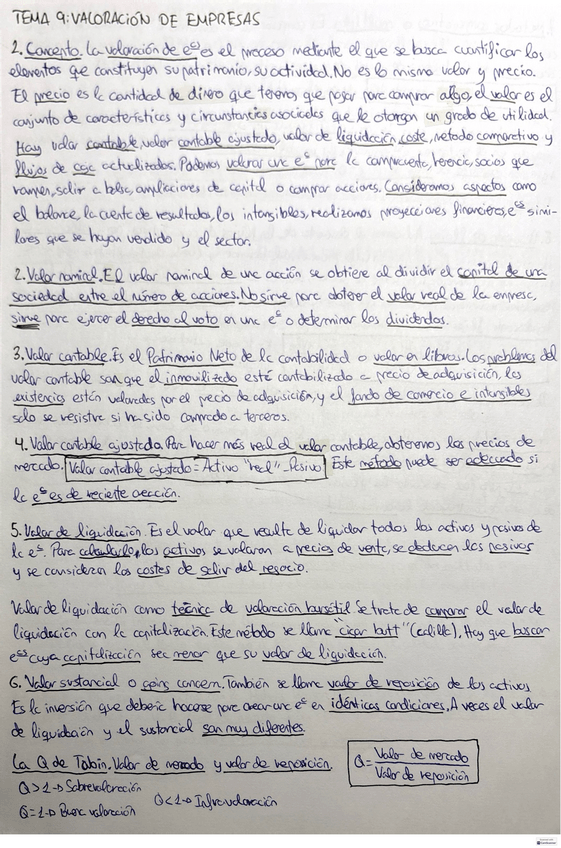 TEMA 9: VALORACIÓN DE EMPRESAS
1. Concepto. La valoración de eᵃˢ es el proceso mediante el que se busca cuantificar los
elementos que constituyen su patrimonio, su actividad. No es lo mismo valor y precio.
El precio es la cantidad de dinero que tenemos que pagar para comprar algo, el valor es el
conjunto de características y circunstancias asociadas que le otorgan un grado de utilidad.
Hay valor contable, valor contable ajustado, valor de liquidación, coste, método comparativo y
flujos de caja actualizados. Podemos valorar una eᵃ para la compraventa, herencia, socios que
rompen, salir a bolsa, ampliaciones de capital o comprar acciones. Consideramos aspectos como
el balance, la cuenta de resultados, los intangibles, realizamos proyecciones financieras, eᵃˢ simi-
lares que se hayan vendido y el sector.
2. Valor nominal. El valor nominal de una acción se obtiene al dividir el capital de una
sociedad entre el número de acciones. No sirve para obtener el valor real de la empresa,
sirve para ejercer el derecho al voto en una eᵃ o determinar los dividendos.
3. Valor contable. Es el Patrimonio Neto de la contabilidad o valor en libros. Los problemas del
valor contable son que el inmovilizado está contabilizado a precio de adquisición, las
existencias están valoradas por el precio de adquisición, y el fondo de comercio e intangibles
solo se registra si ha sido comprado a terceros.
4. Valor contable ajustado. Para hacer más real el valor contable, obtenemos los precios de
mercado. Valor contable ajustado = Activo "real" - Pasivo Este método puede ser adecuado si
la eᵃ es de reciente creación.
5. Valor de liquidación. Es el valor que resulte de liquidar todos los activos y pasivos de
la eᵃ. Para calcularlo, los activos se valoran a precios de venta, se deducen los pasivos
y se consideran los costes de salir del negocio.
Valor de liquidación como técnica de valoración bursátil Se trata de comparar el valor de
liquidación con la capitalización. Este método se llama "cigar butt" (colilla). Hay que buscar
eᵃˢ cuya capitalización sea menor que su valor de liquidación.
6. Valor sustancial o going concern. También se llama valor de reposición de los activos
Es la inversión que debería hacerse para crear una eᵃ en idénticas condiciones. A veces el valor
de liquidación y el sustancial son muy diferentes.
La Q de Tobin. Valor de mercado y valor de reposición. Q = Valor de mercado / Valor de reposición
Q > 1 → Sobrevaloración
Q = 1 → Buena valoración Q < 1 → Infravaloración